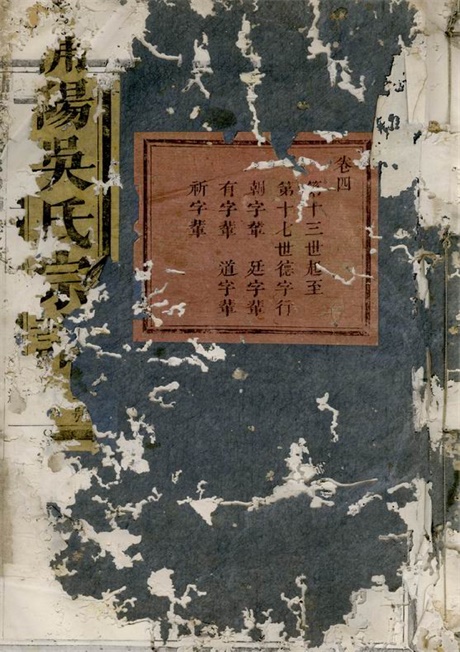 卷四
第十三世起至
第十七世德字行
朝字輩 廷字輩
有字輩 道字輩
祈字輩
陽吳氏宗譜